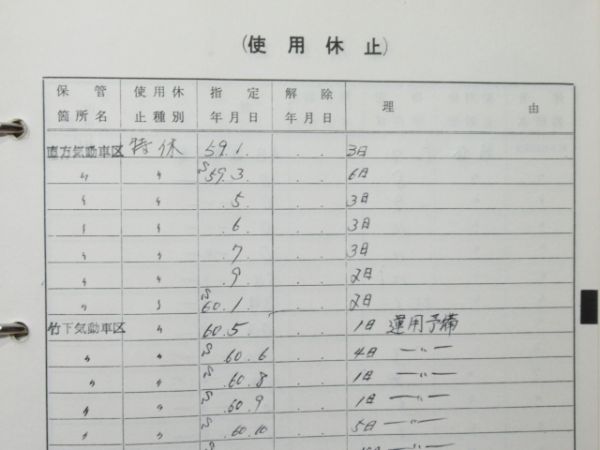 (使用休止)
保管箇所名 使用休止種別 指定年月日 解除年月日 理由
直方気動車区 特休 59.1. . . 3日
〃 〃 S59.3. . . 6日
〃 〃 .5. . . 3日
〃 〃 .6. . . 3日
〃 〃 .7. . . 3日
〃 〃 .9. . . 2日
〃 〃 S60.1. . . 2日
竹下気動車区 〃 60.5. . . 1日 運用予備
〃 〃 S60.6 . . 4日 —〃—
〃 〃 S.60.8 . . 1日 —〃—
〃 〃 S.60.9 . . 1日 —〃—
〃 〃 S.60.10 . . 5日 —〃—